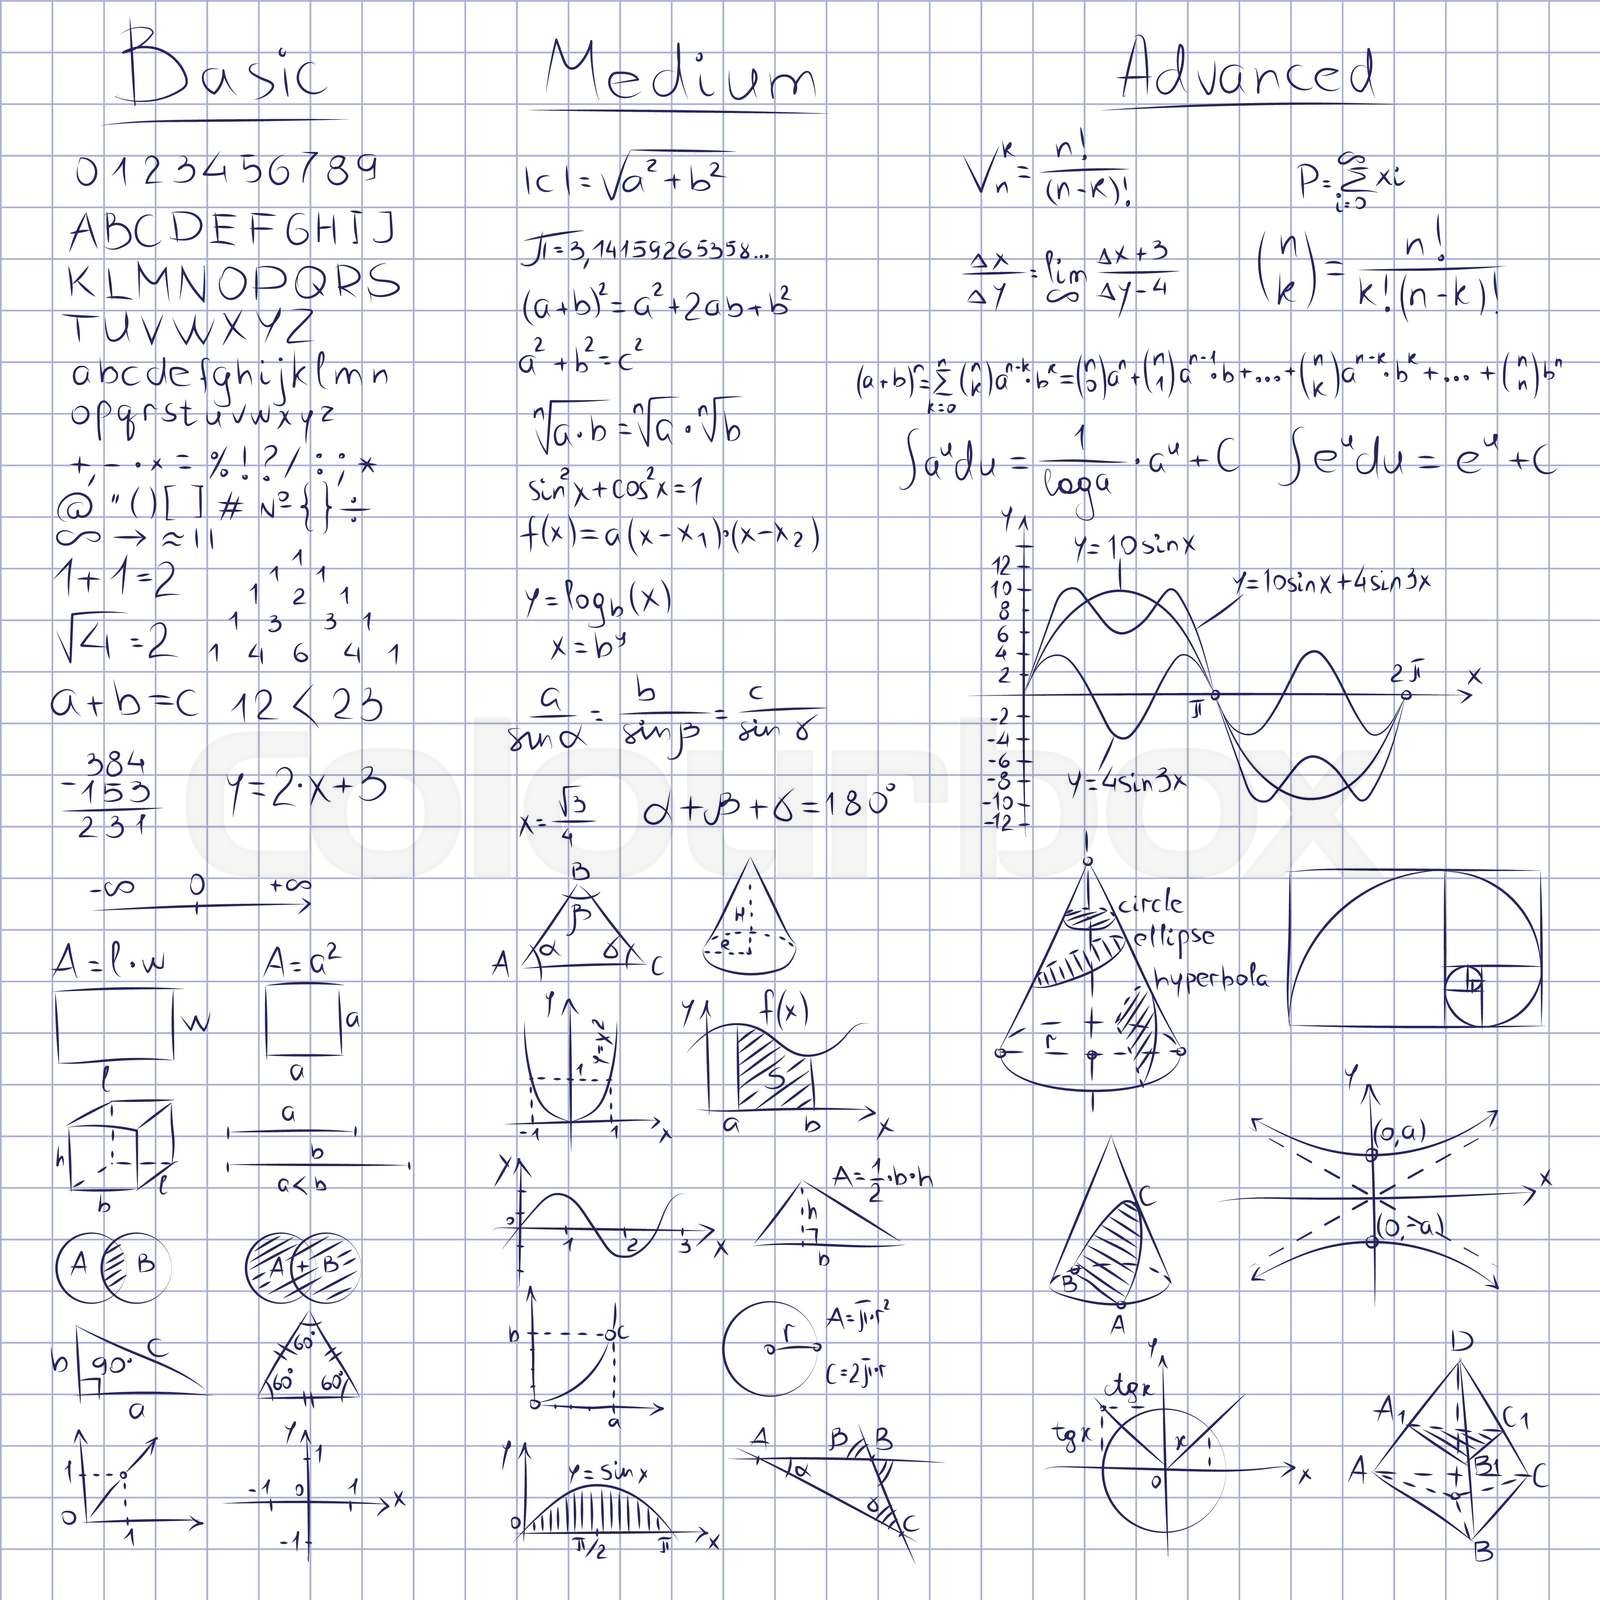 Basic
0123456789
ABCDEFGHIJ
KLMNOPQRS
TUVWXYZ
abcdefghijklmn
opqrstuvwxyz
+, - . × = % ! ? / : ; *
@ " ( ) [ ] # № { } ÷
∞ → ≈ | |
1+1=2
1
1 1
1 2 1
1 3 3 1
1 4 6 4 1
√4 = 2
a+b=c 12 < 23
384
-153
231
y=2·x+3
-∞ 0 +∞
A=l·w
w
l
A=a²
a
a
h
b
l
a
b
a<b
A B
A + B
b 90° c
a
60°
60° 60°
1
0 1
y
1
-1 0 1 x
-1
Medium
|c|=√(a²+b²)
π=3,14159265358...
(a+b)²=a²+2ab+b²
a²+b²=c²
ⁿ√(a·b)=ⁿ√a·ⁿ√b
sin²x+cos²x=1
f(x)=a(x-x₁)·(x-x₂)
y=log_b(x)
x=b^y
a/sinα = b/sinβ = c/sinγ
x=√3/4
α+β+δ=180°
B
β
A α δ C
H
R
y
y=x²
1
-1 1 x
y f(x)
S
a b x
y
0 1 2 3 x
A=1/2·b·h
h
b
b c
a
r
A=π·r²
C=2π·r
y
y=sinx
0 π/2 π x
A B B
α
δ
C
Advanced
V_n^k = n!/(n-k)!
P=∑_{i=0}^{∞} xi
Δx/Δy = lim_∞ (Δx+3)/(Δy-4)
(n k) = n!/(k!(n-k)!)
(a+b)ⁿ=∑_{k=0}^{n} (n k)a^{n-k}·b^k=(n 0)aⁿ+(n 1)a^{n-1}·b+...+(n k)a^{n-k}·b^k+...+(n n)bⁿ
∫a^u du = 1/loga · a^u + C
∫e^u du = e^u + C
y
y=10sinx
y=10sinx+4sin3x
12
10
8
6
4
2
π 2π x
-2
-4
-6
-8
-10
-12
y=4sin3x
circle
ellipse
hyperbola
r
y
(0,a)
x
(0,-a)
C
B
A
y
ctgx
tgx
x
0 x
D
A₁ C₁
B1
A C
B
colourbox